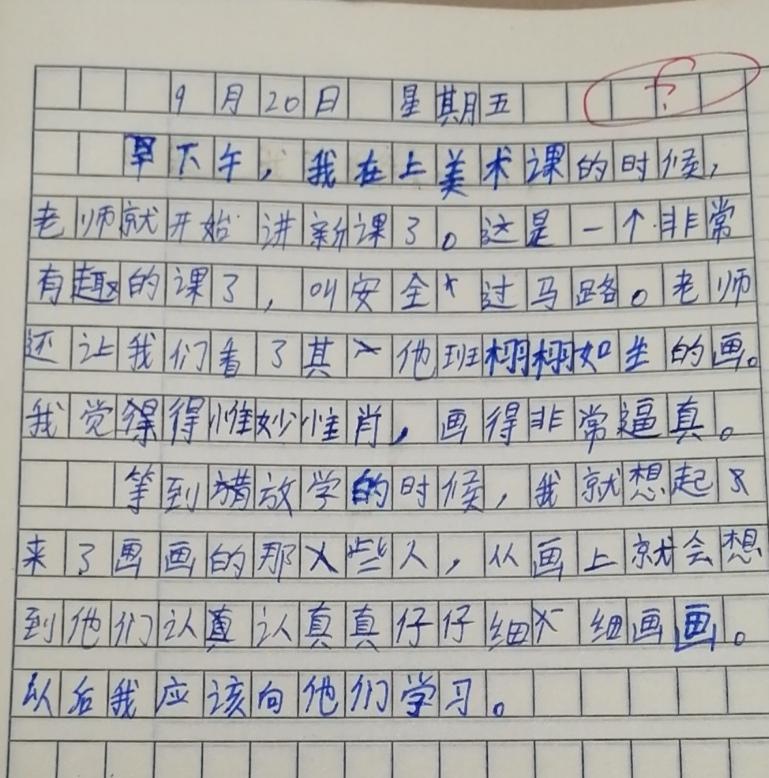 9月20日 星期五 ?
下午，我在上美术课的时候，
老师就开始讲新课了。这是一个非常
有趣的课了，叫安全过马路。老师
还让我们看了其他班栩栩如生的画。
我觉得得惟妙惟肖，画得非常逼真。
等到放学的时候，我就想起
来了画画的那些人，从画上就会想
到他们认真认真真仔仔细细画画。
以后我应该向他们学习。